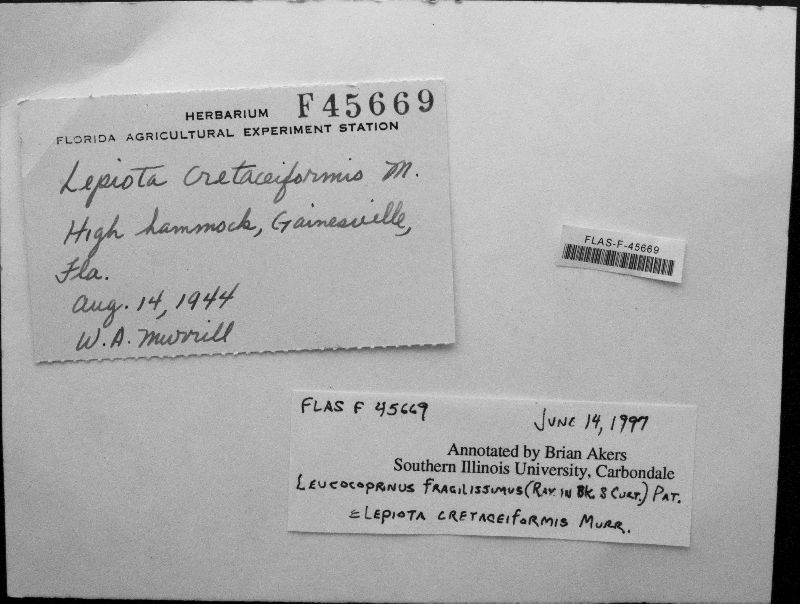 HERBARIUM F45669
FLORIDA AGRICULTURAL EXPERIMENT STATION
Lepiota cretaceiformis M.
High hammock, Gainesville,
Fla.
Aug. 14, 1944
W.A. Murrill
FLAS-F-45669
FLAS F 45669 JUNE 14, 1997
Annotated by Brian Akers
Southern Illinois University, Carbondale
LEUCOCOPRINUS FRAGILISSIMUS (RAV. IN BK. & CURT.) PAT.
= LEPIOTA CRETACEIFORMIS MURR.